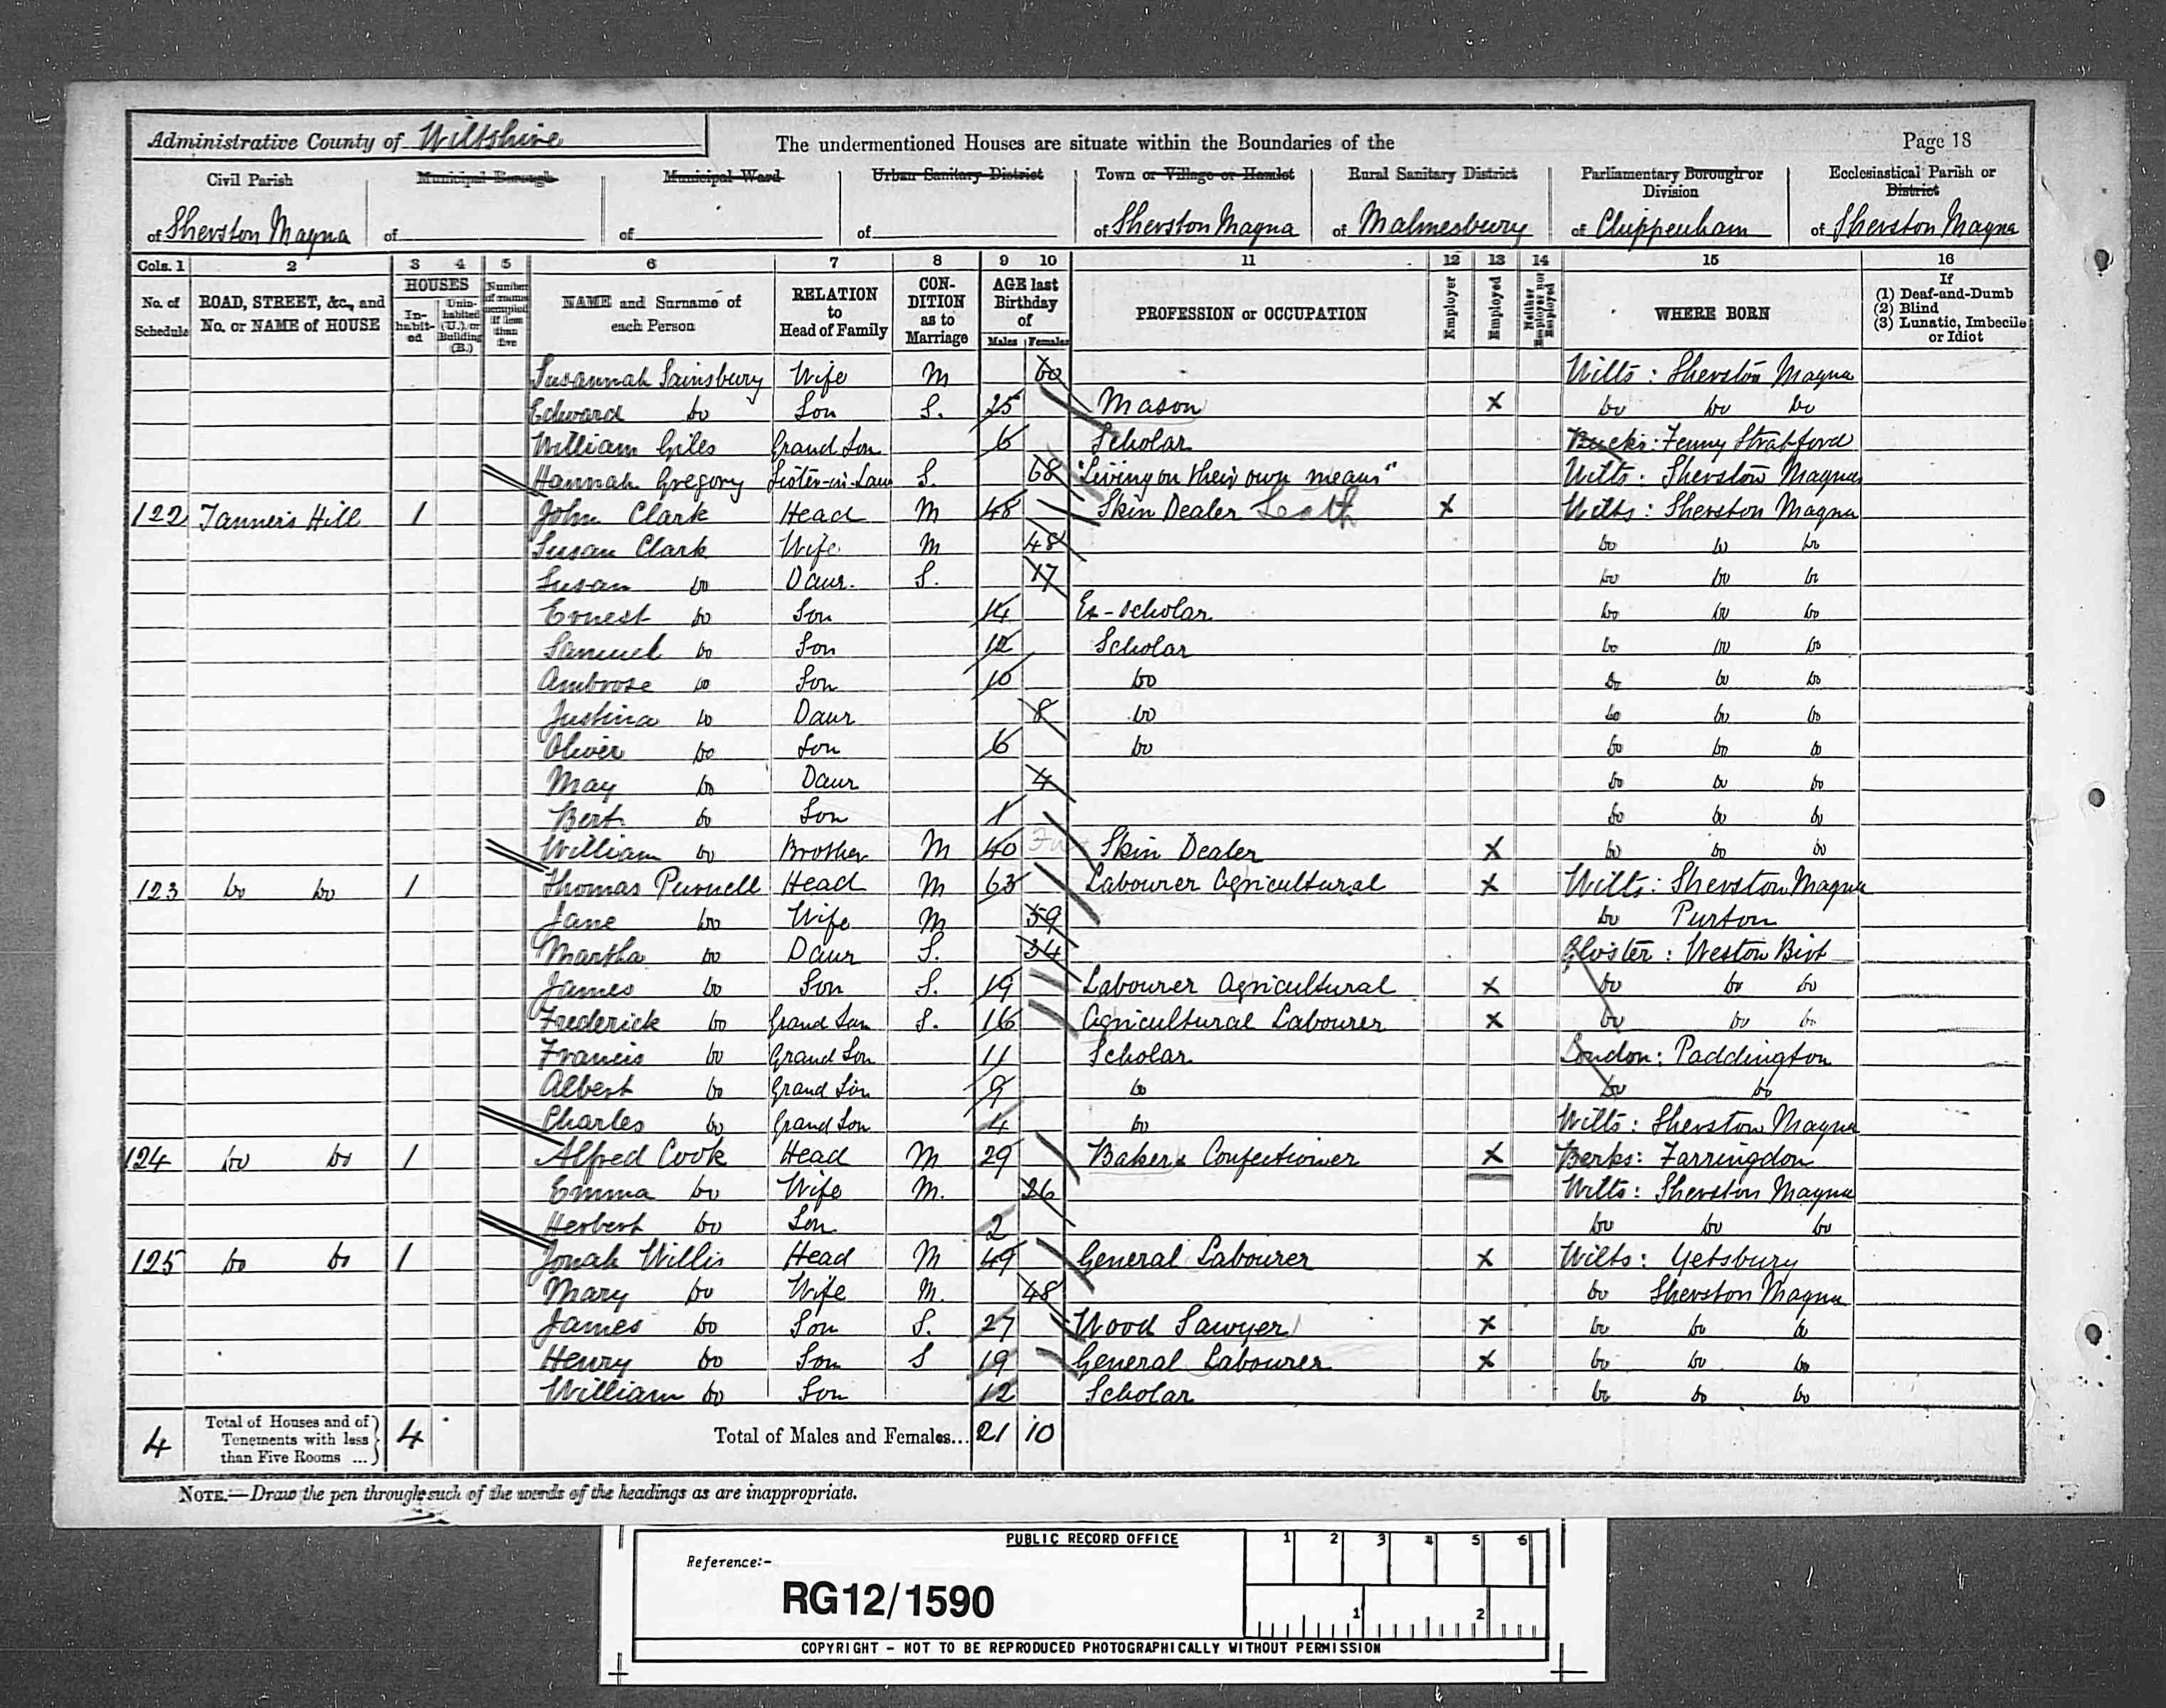 Administrative County of Wiltshire The undermentioned Houses are situate within the Boundaries of the Page 18
Civil Parish Municipal Borough Municipal Ward Urban Sanitary District Town or Village or Hamlet Rural Sanitary District Parliamentary Borough or Division Ecclesiastical Parish or District
of Sherston Magna of of of of Sherston Magna of Malmesbury of Chippenham of Sherston Magna
Cols. 1 2 3 4 5 6 7 8 9 10 11 12 13 14 15 16
No. of Schedule ROAD, STREET, &c., and No. or NAME of HOUSE HOUSES In-habit-ed Unin-habited (U.), or Building (B.) Number of rooms occupied if less than five NAME and Surname of each Person RELATION to Head of Family CON-DITION as to Marriage AGE last Birthday of Males Females PROFESSION or OCCUPATION Employer Employed Neither Employer nor Employed WHERE BORN If (1) Deaf-and-Dumb (2) Blind (3) Lunatic, Imbecile or Idiot
Susannah Sainsbury Wife M 60 Wilts: Sherston Magna
Edward Do Son S. 25 Mason X Do Do Do
William Giles Grand Son 6 Scholar Bucks: Fenny Stratford
Hannah Gregory Sister-in-Law S. 68 "Living on their own means" Wilts: Sherston Magna
122 Tanners Hill 1 John Clark Head M 48 Skin Dealer Leath X Wilts: Sherston Magna
Susan Clark Wife M 48 Do Do Do
Susan Do Daur. S. 17 Do Do Do
Ernest Do Son 14 Ex-scholar Do Do Do
Samuel Do Son 12 Scholar Do Do Do
Ambrose Do Son 10 Do Do Do Do
Justina Do Daur 8 Do Do Do Do
Oliver Do Son 6 Do Do Do Do
May Do Daur 4 Do Do Do
Bert Do Son 1 Do Do Do
William Do Brother M 40 Skin Dealer X Do Do Do
123 Do Do 1 Thomas Purnell Head M 63 Labourer Agricultural X Wilts: Sherston Magna
Jane Do Wife M 59 Do Purton
Martha Do Daur S. 34 Gloster: Weston Birt
James Do Son S. 19 Labourer Agricultural X Do Do Do
Frederick Do Grand Son S. 16 Agricultural Labourer X Do Do Do
Francis Do Grand Son 11 Scholar London: Paddington
Albert Do Grand Son 9 Do Do Do
Charles Do Grand Son 4 Do Wilts: Sherston Magna
124 Do Do 1 Alfred Cook Head M 29 Baker & Confectioner X Berks: Farringdon
Emma Do Wife M. 26 Wilts: Sherston Magna
Herbert Do Son 2 Do Do Do
125 Do Do 1 Jonah Willis Head M 49 General Labourer X Wilts: Yetsbury
Mary Do Wife M. 48 Do Sherston Magna
James Do Son S. 27 Wood Sawyer X Do Do Do
Henry Do Son S 19 General Labourer X Do Do Do
William Do Son 12 Scholar Do Do Do
4 Total of Houses and of Tenements with less than Five Rooms ... 4 Total of Males and Females... 21 10
NOTE.—Draw the pen through such of the words of the headings as are inappropriate.
PUBLIC RECORD OFFICE 1 2 3 4 5 6
Reference:-
RG12/1590 1 2
COPYRIGHT - NOT TO BE REPRODUCED PHOTOGRAPHICALLY WITHOUT PERMISSION